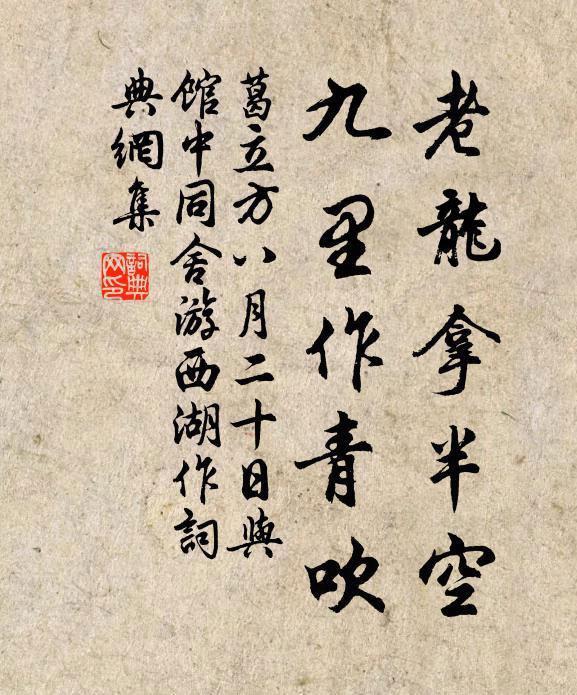 老龍拿半空
九里作青吹
葛立方八月二十日與
館中同舍游西湖作詞
典網集
詞典网印